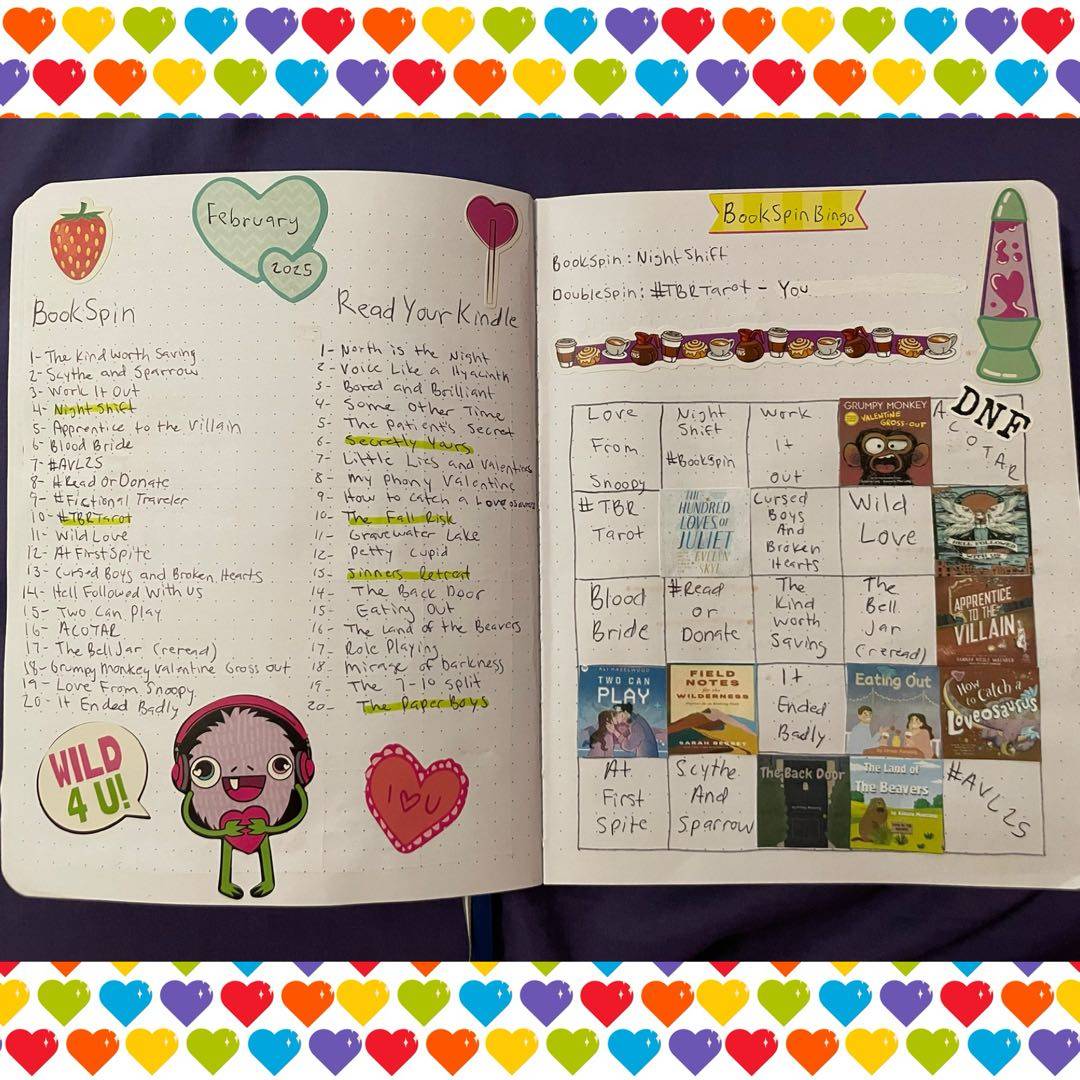 February
2025
BookSpin
1- The Kind Worth Saving
2- Scythe and Sparrow
3- Work It Out
4- Night Shift
5- Apprentice to the Villain
6- Blood Bride
7- #AVL2S
8- #Read Or Donate
9- #Fictional Traveler
10- #TBRTarot
11- Wild Love
12- At First Spite
13- Cursed Boys and Broken Hearts
14- Hell Followed With Us
15- Two Can Play
16- ACOTAR
17- The Bell Jar (reread)
18- Grumpy Monkey Valentine Gross out
19- Love From Snoopy
20- It Ended Badly
WILD
4 U!
Read Your Kindle
1- North is the Night
2- Voice Like a Hyacinth
3- Bored and Brilliant
4- Some Other Time
5- The Patient's Secret
6- Secretly Yours
7- Little Lies and Valentines
8- My Phony Valentine
9- How to Catch a Loveosaurus
10- The Fall Risk
11- Gravewater Lake
12- Petty Cupid
13- Sinners Retreat
14- The Back Door
15- Eating Out
16- The Land of the Beavers
17- Role Playing
18- Mirage of Darkness
19- The 7-10 Split
20- The Paper Boys
I U
BookSpin Bingo
BookSpin: Night Shift
DoubleSpin: #TBRTarot - You
Love
From
Snoopy
Night
Shift
#BookSpin
Work
It
Out
GRUMPY MONKEY
VALENTINE
GROSS-OUT
DNF
ACOTAR
#TBR
Tarot
THE
HUNDRED
LOVES OF
JULIET
EVELYN
SKYE
Cursed
Boys
And
Broken
Hearts
Wild
Love
HELL FOLLOWED
WITH US
Blood
Bride
#Read
or
Donate
The
Kind
Worth
Saving
The
Bell
Jar
(reread)
APPRENTICE
TO THE
VILLAIN
HANNAH NICOLE MAEHRER
ALI HAZELWOOD
TWO CAN
PLAY
FIELD
NOTES
for the
WILDERNESS
SARAH BESSEY
It
Ended
Badly
Eating Out
How
to Catch
a
Loveosaurus
At
First
Spite
Scythe
And
Sparrow
The Back Door
The Land of
The Beavers
#AVL2S